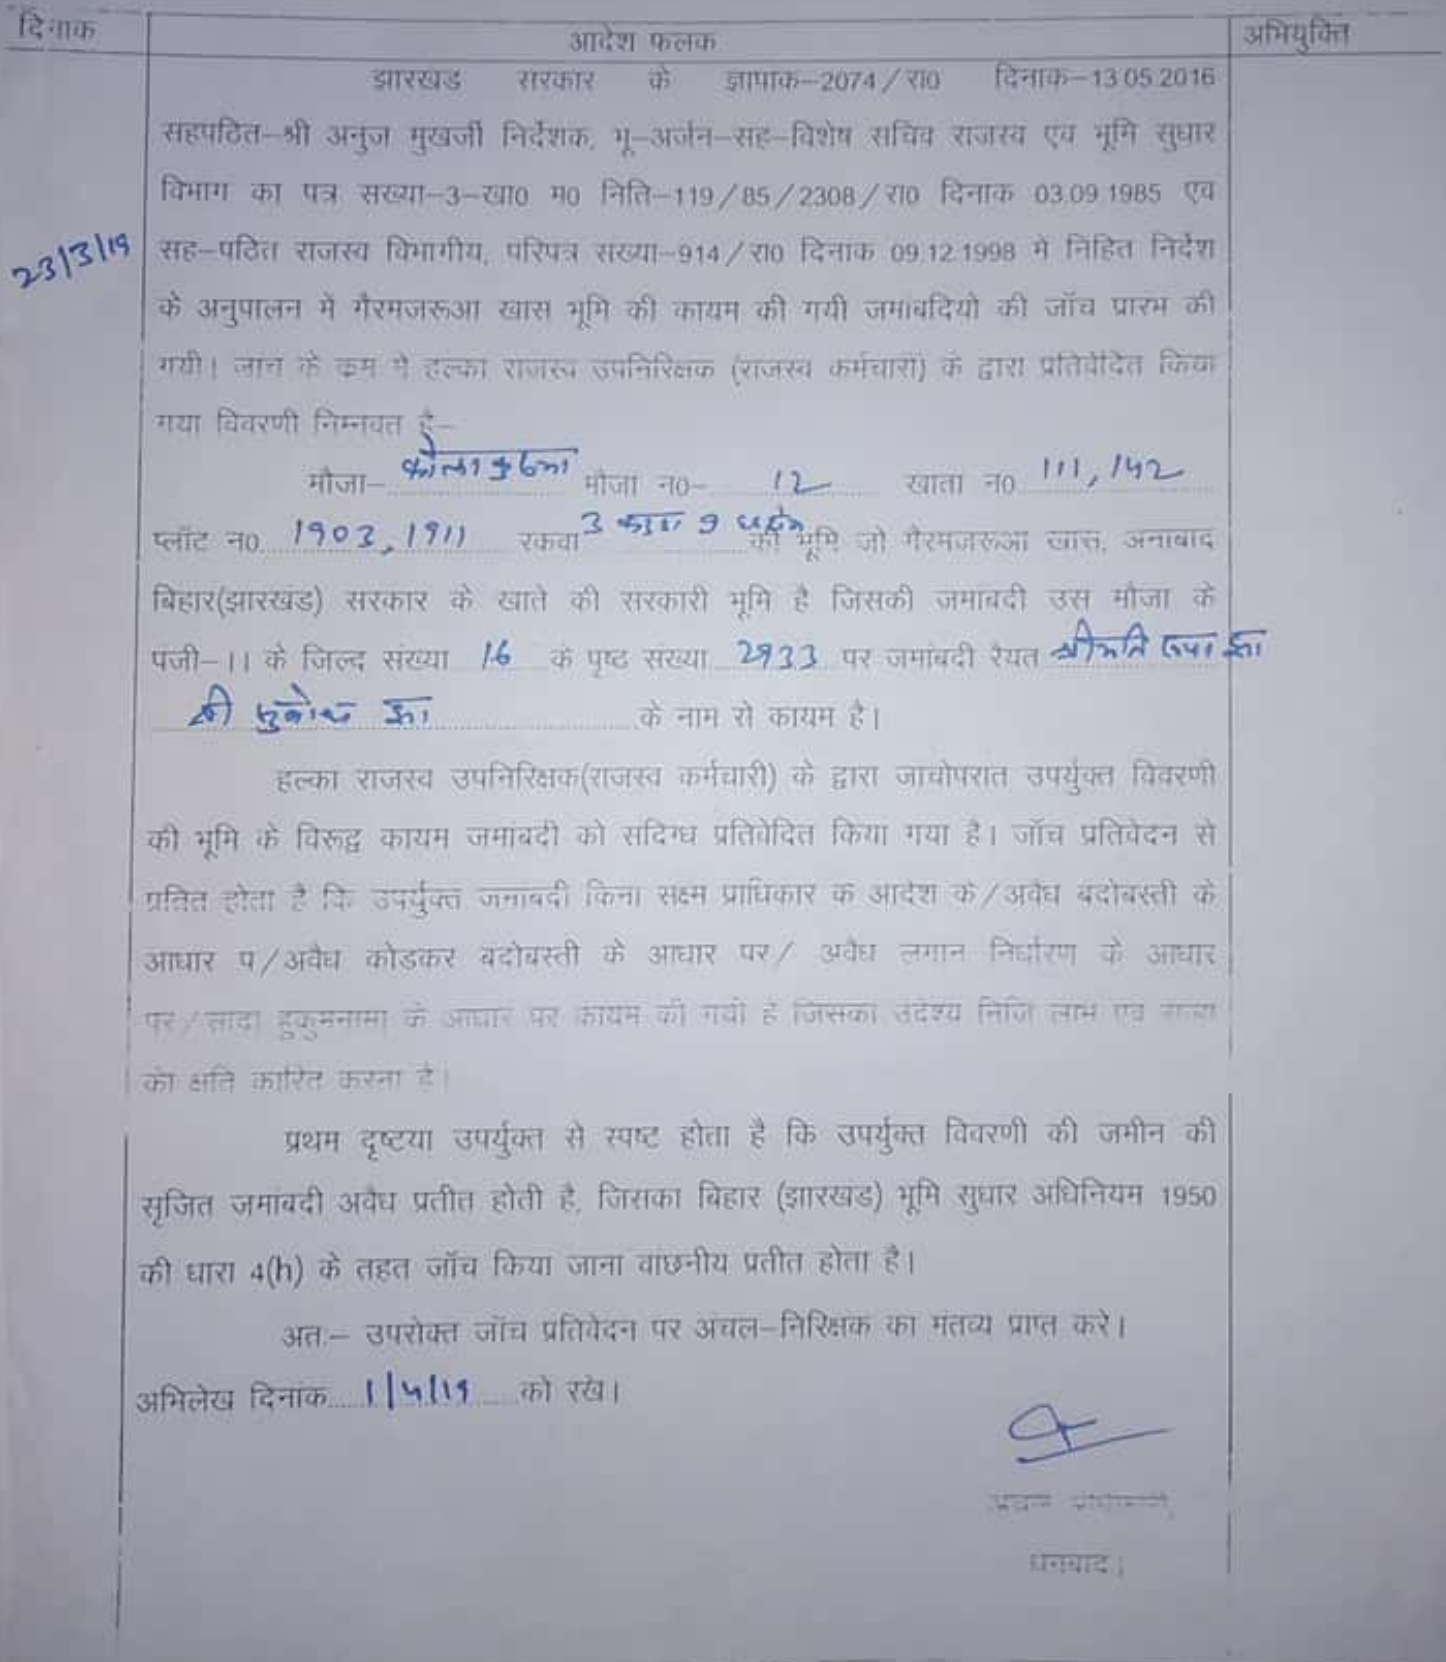 दिनाक आदेश फलक अभियुक्ति
झारखड सरकार के ज्ञापाक–2074/रा0 दिनाक–13.05.2016
सहपठित–श्री अनुज मुखर्जी निर्देशक, भू–अर्जन–सह–विशेष सचिव राजस्व एव भूमि सुधार
विभाग का पत्र सख्या–3–खा0 म0 निति–119/85/2308/रा0 दिनाक 03.09.1985 एव
23/3/19 सह–पठित राजस्व विभागीय, परिपत्र सख्या–914/रा0 दिनाक 09.12.1998 मे निहित निर्देश
के अनुपालन में गैरमजरूआ खास भूमि की कायम की गयी जमाबदियो की जॉच प्रारभ की
गयी। जाच के क्रम मे हल्का राजस्व उपनिरिक्षक (राजस्व कर्मचारी) के द्वारा प्रतिवेदित किया
गया विवरणी निम्नवत है–
मौजा– मौजा न0– 12 खाता न0 111, 142
प्लॉट न0. 1903, 1911 रकवा 3 कट्ठा 9 की भूमि जो गैरमजरूआ खास, अनाबाद
बिहार(झारखंड) सरकार के खाते की सरकारी भूमि है जिसकी जमांबदी उस मौजा के
पंजी–।। के जिल्द संख्या 16 के पृष्ठ संख्या 2933 पर जमांबदी रैयत श्रीमति रूपा झा
श्री सुबोध झा के नाम से कायम है।
हल्का राजस्व उपनिरिक्षक(राजस्व कर्मचारी) के द्वारा जाचोपरात उपर्युक्त विवरणी
की भूमि के विरूद्व कायम जमांबदी को सदिग्ध प्रतिवेदित किया गया है। जॉच प्रतिवेदन से
प्रतित होता है कि उपर्युक्त जमाबदी किना सक्ष्म प्राधिकार क आदेश के/अवैध बदोबस्ती के
आधार प/अवैध कोडकर बदोबस्ती के आधार पर/ अवैध लगान निर्धारण के आधार
पर/सादा हुकुमनामा के आधार पर कायम की गयी है जिसका उदेश्य निजि लाभ एव राज्य
को क्षति कारित करना है।
प्रथम दृष्टया उपर्युक्त से स्पष्ट होता है कि उपर्युक्त विवरणी की जमीन की
सृजित जमांबदी अवैध प्रतीत होती है, जिसका बिहार (झारखड) भूमि सुधार अधिनियम 1950
की धारा 4(h) के तहत जॉच किया जाना वाछनीय प्रतीत होता है।
अतः– उपरोक्त जॉच प्रतिवेदन पर अंचल–निरिक्षक का मंतव्य प्राप्त करे।
अभिलेख दिनांक 1/4/19 को रखे।
अंचल अधिकारी,
धनबाद।